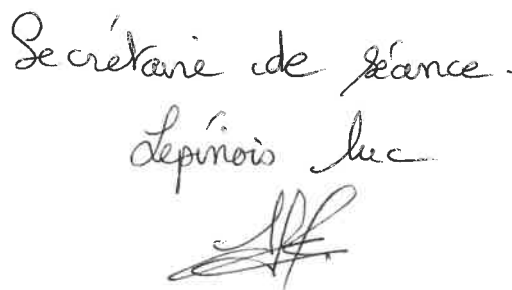 Secrétaire de séance.
Lepinois Luc